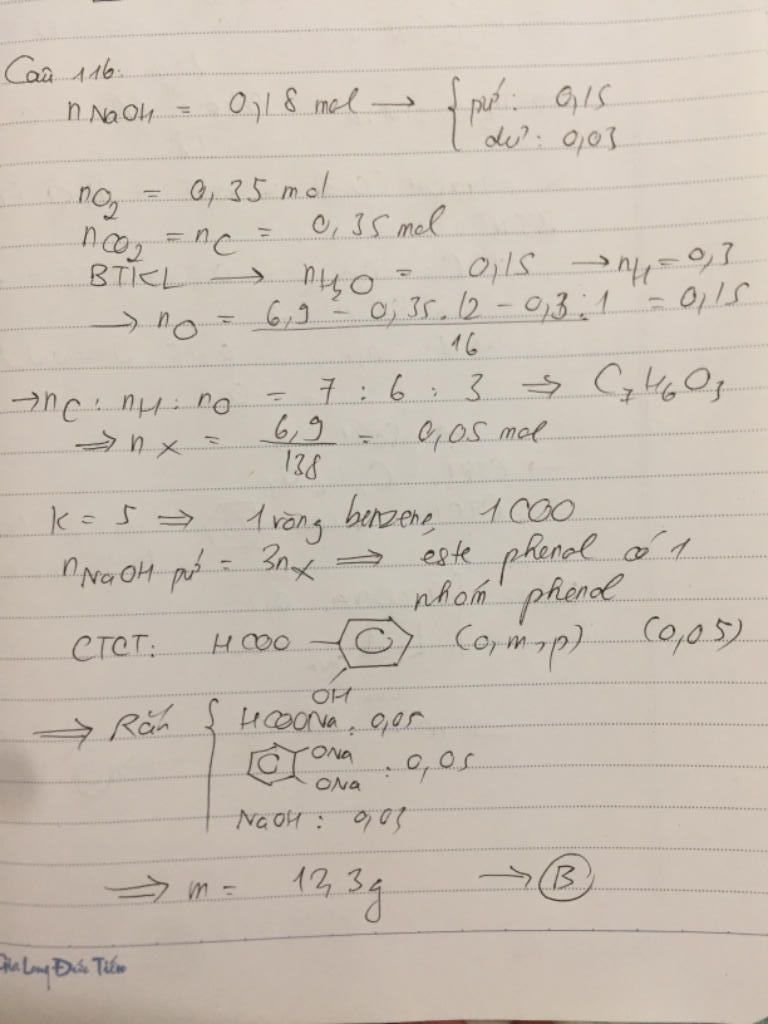 Câu 116:
nNaOH = 0,18 mol → { pứ: 0,15
dư: 0,03
nO2 = 0,35 mol
nCO2 = nC = 0,35 mol
BTKL → nH2O = 0,15 → nH = 0,3
→ nO = (6,9 - 0,35.12 - 0,3.1)/16 = 0,15
→ nC : nH : nO = 7 : 6 : 3 ⇒ C7H6O3
⇒ nX = 6,9/138 = 0,05 mol
k = 5 ⇒ 1 vòng benzene, 1 COO
nNaOH pứ = 3nX ⇒ este phenol có 1
nhóm phenol
CTCT: HCOO OH (o,m,p) (0,05)
⇒ Rắn { HCOONa: 0,05
ONa ONa : 0,05
NaOH: 0,03
⇒ m = 12,3g → B
Gia Long Đức Tiến